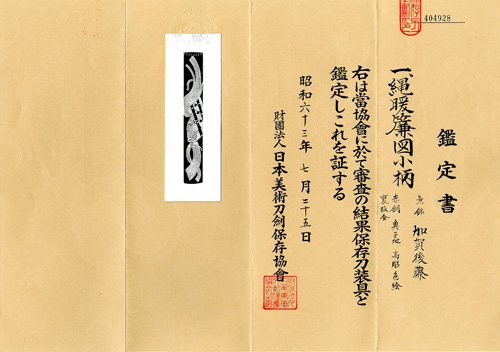 404928
鑑定書
一、縄暖簾図小柄
無銘 加賀後藤
赤銅 魚子地 高彫色絵
裏板金
右は當協會に於て審査の結果保存刀装具と
鑑定しこれを証する
昭和六十三年七月二十五日
財團法人日本美術刀劍保存協會